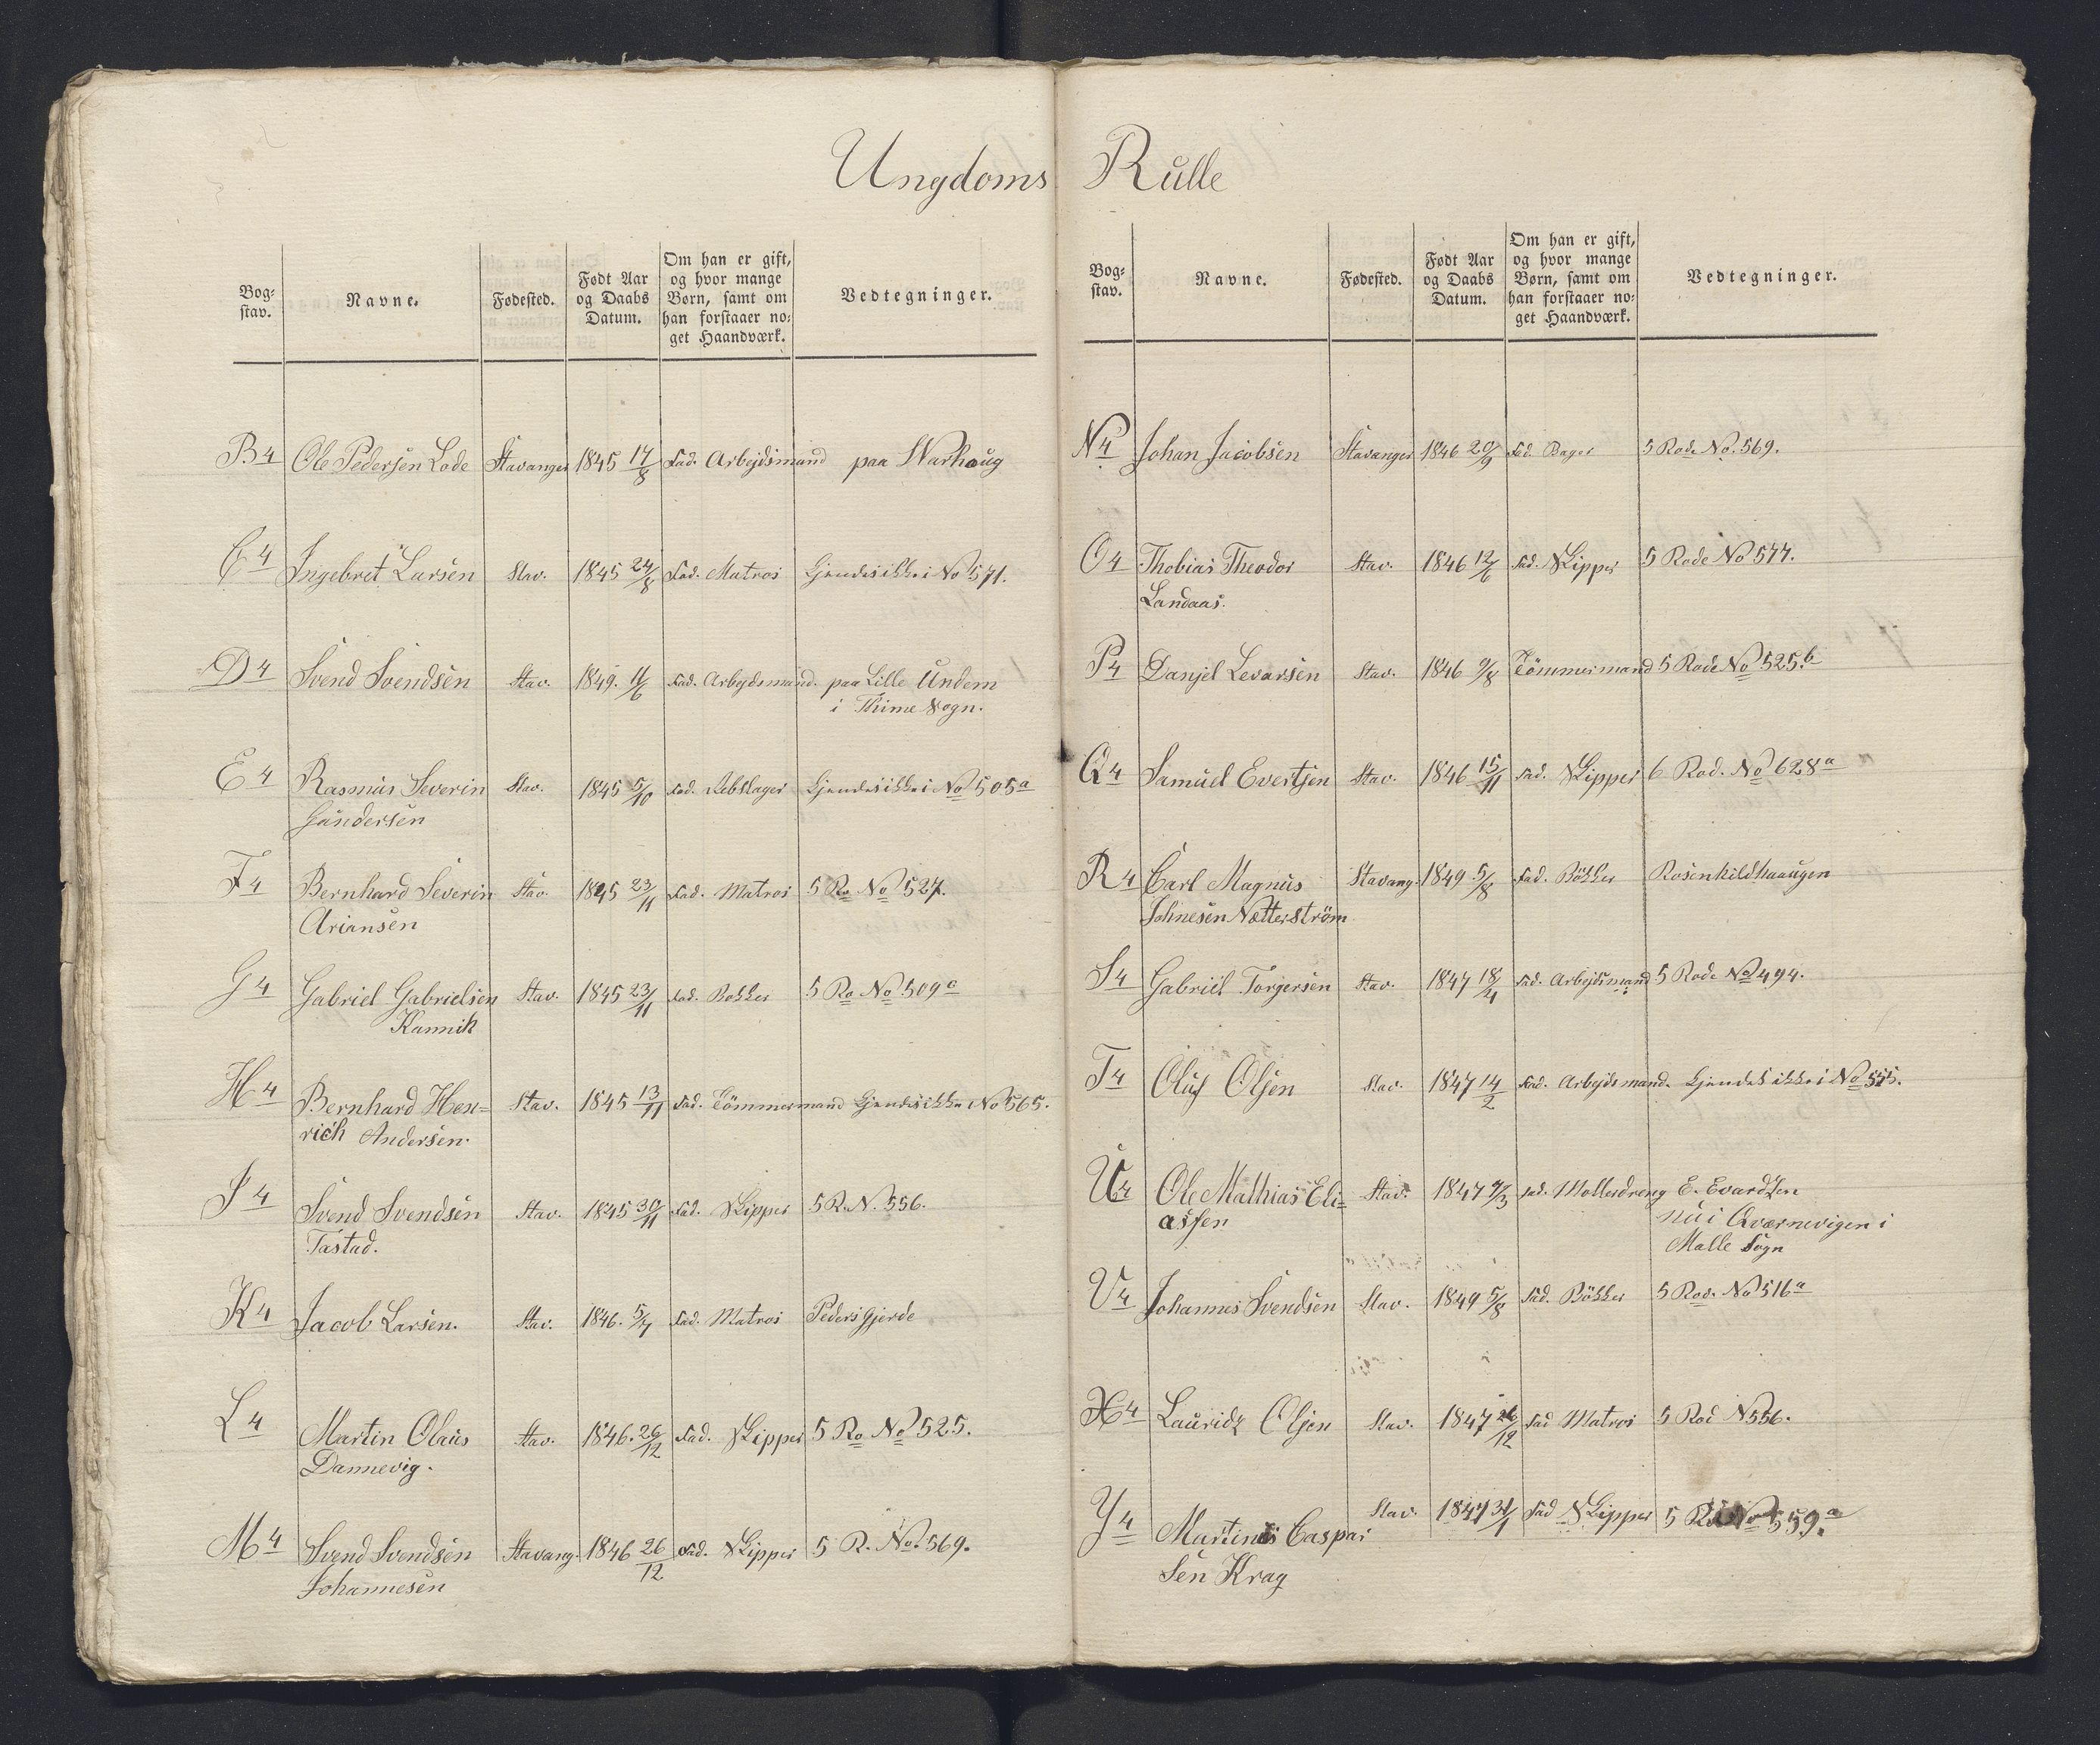 Ungdoms Rulle
Bog-
stav.
Navne.
Fødested.
Født Aar
og Daabs
Datum.
Om han er gift,
og hvor mange
Børn, samt om
han forstaaer no-
get Haandværk.
Vedtegninger.
B4 Ole Pedersen Lode Stavanger 1845 17/8 Fad. Arbejdsmand paa Warhoug
C4 Ingebret Larsen Stav. 1845 24/8 Fad. Matros Gjendes ikke i No 571.
D4 Svend Svendsen Stav. 1849. 11/6 Fad. Arbejdsmand. paa Lille Undem
i Thime Sogn.
E4 Rasmus Severin Stav. 1845 5/10 Fad. Rebslager Gjendes ikke i No 505a
Gundersen
F4 Bernhard Severin Stav. 1845 23/11 Fad. Matros 5 Ro No 527.
Ariansen
G4 Gabriel Gabrielsen Stav. 1845 23/11 Fad. Bøkker 5 Ro No 509a
Kannik
H4 Bernhard Hen=
rich Andersen. Stav. 1845 13/11 Fad. Tömmermand Gjendes ikke No 565.
I4 Svend Svendsen Stav. 1845 30/11 Fad. Skipper 5 R. N. 556.
Tastad.
K4 Jacob Larsen. Stav. 1846. 5/7 Fad. Matros Pedersgjerde
L4 Martin Olaus Stav. 1846. 26/12 Fad. Skipper 5 Ro No 525.
Dannevig.
M4 Svend Svendsen Stavang. 1846 26/12 Fad. Skipper 5 R. No. 569.
Johannesen
Bog-
stav.
Navne.
Fødested.
Født Aar
og Daabs
Datum.
Om han er gift,
og hvor mange
Børn, samt om
han forstaaer no-
get Haandværk.
Vedtegninger.
N4 Johan Jacobsen Stavanger 1846 20/9 Fad. Bager 5 Rode No. 569.
O4 Thobias Theodor Stav. 1846 12/6 Fad. Skipper 5 Rode No 577.
Landaas.
P4 Danjel Levarsen Stav. 1846 9/8 Tömmermand 5 Rode No 525.b
Q4 Samuel Evertsen Stav. 1846 15/11 Fad. Skipper 6 Rod. No 628a
R4 Carl Magnus Stavang. 1849 5/8 Fad. Bökker Rosenkildhaugen
Johnesen Nætterström
S4 Gabriel Torgersen Stav. 1847 18/4 Fad. Arbejdsmand 5 Rode No 494.
T4 Oluf Olsen Stav. 1847 14/2 Fad. Arbejdsmand. Gjendes ikke i No 515.
U4 Ole Mathias Eli= Stav. 1847 9/3 Fad. Mollerdreng E. Evardsen
assen nu i Qværnevigen i
Malle Sogn
V4 Johannes Svendsen Stav. 1849 5/8 Fad. Bökker 5 Rod. No 516a
X4 Lauridz Olsen Stav. 1847 26/12 Fad Matros 5 Rod N 556.
Y4 Martinus Caspar Stav. 1847 31/1 Fad Skipper 5 Rod No 559.a
sen Krag